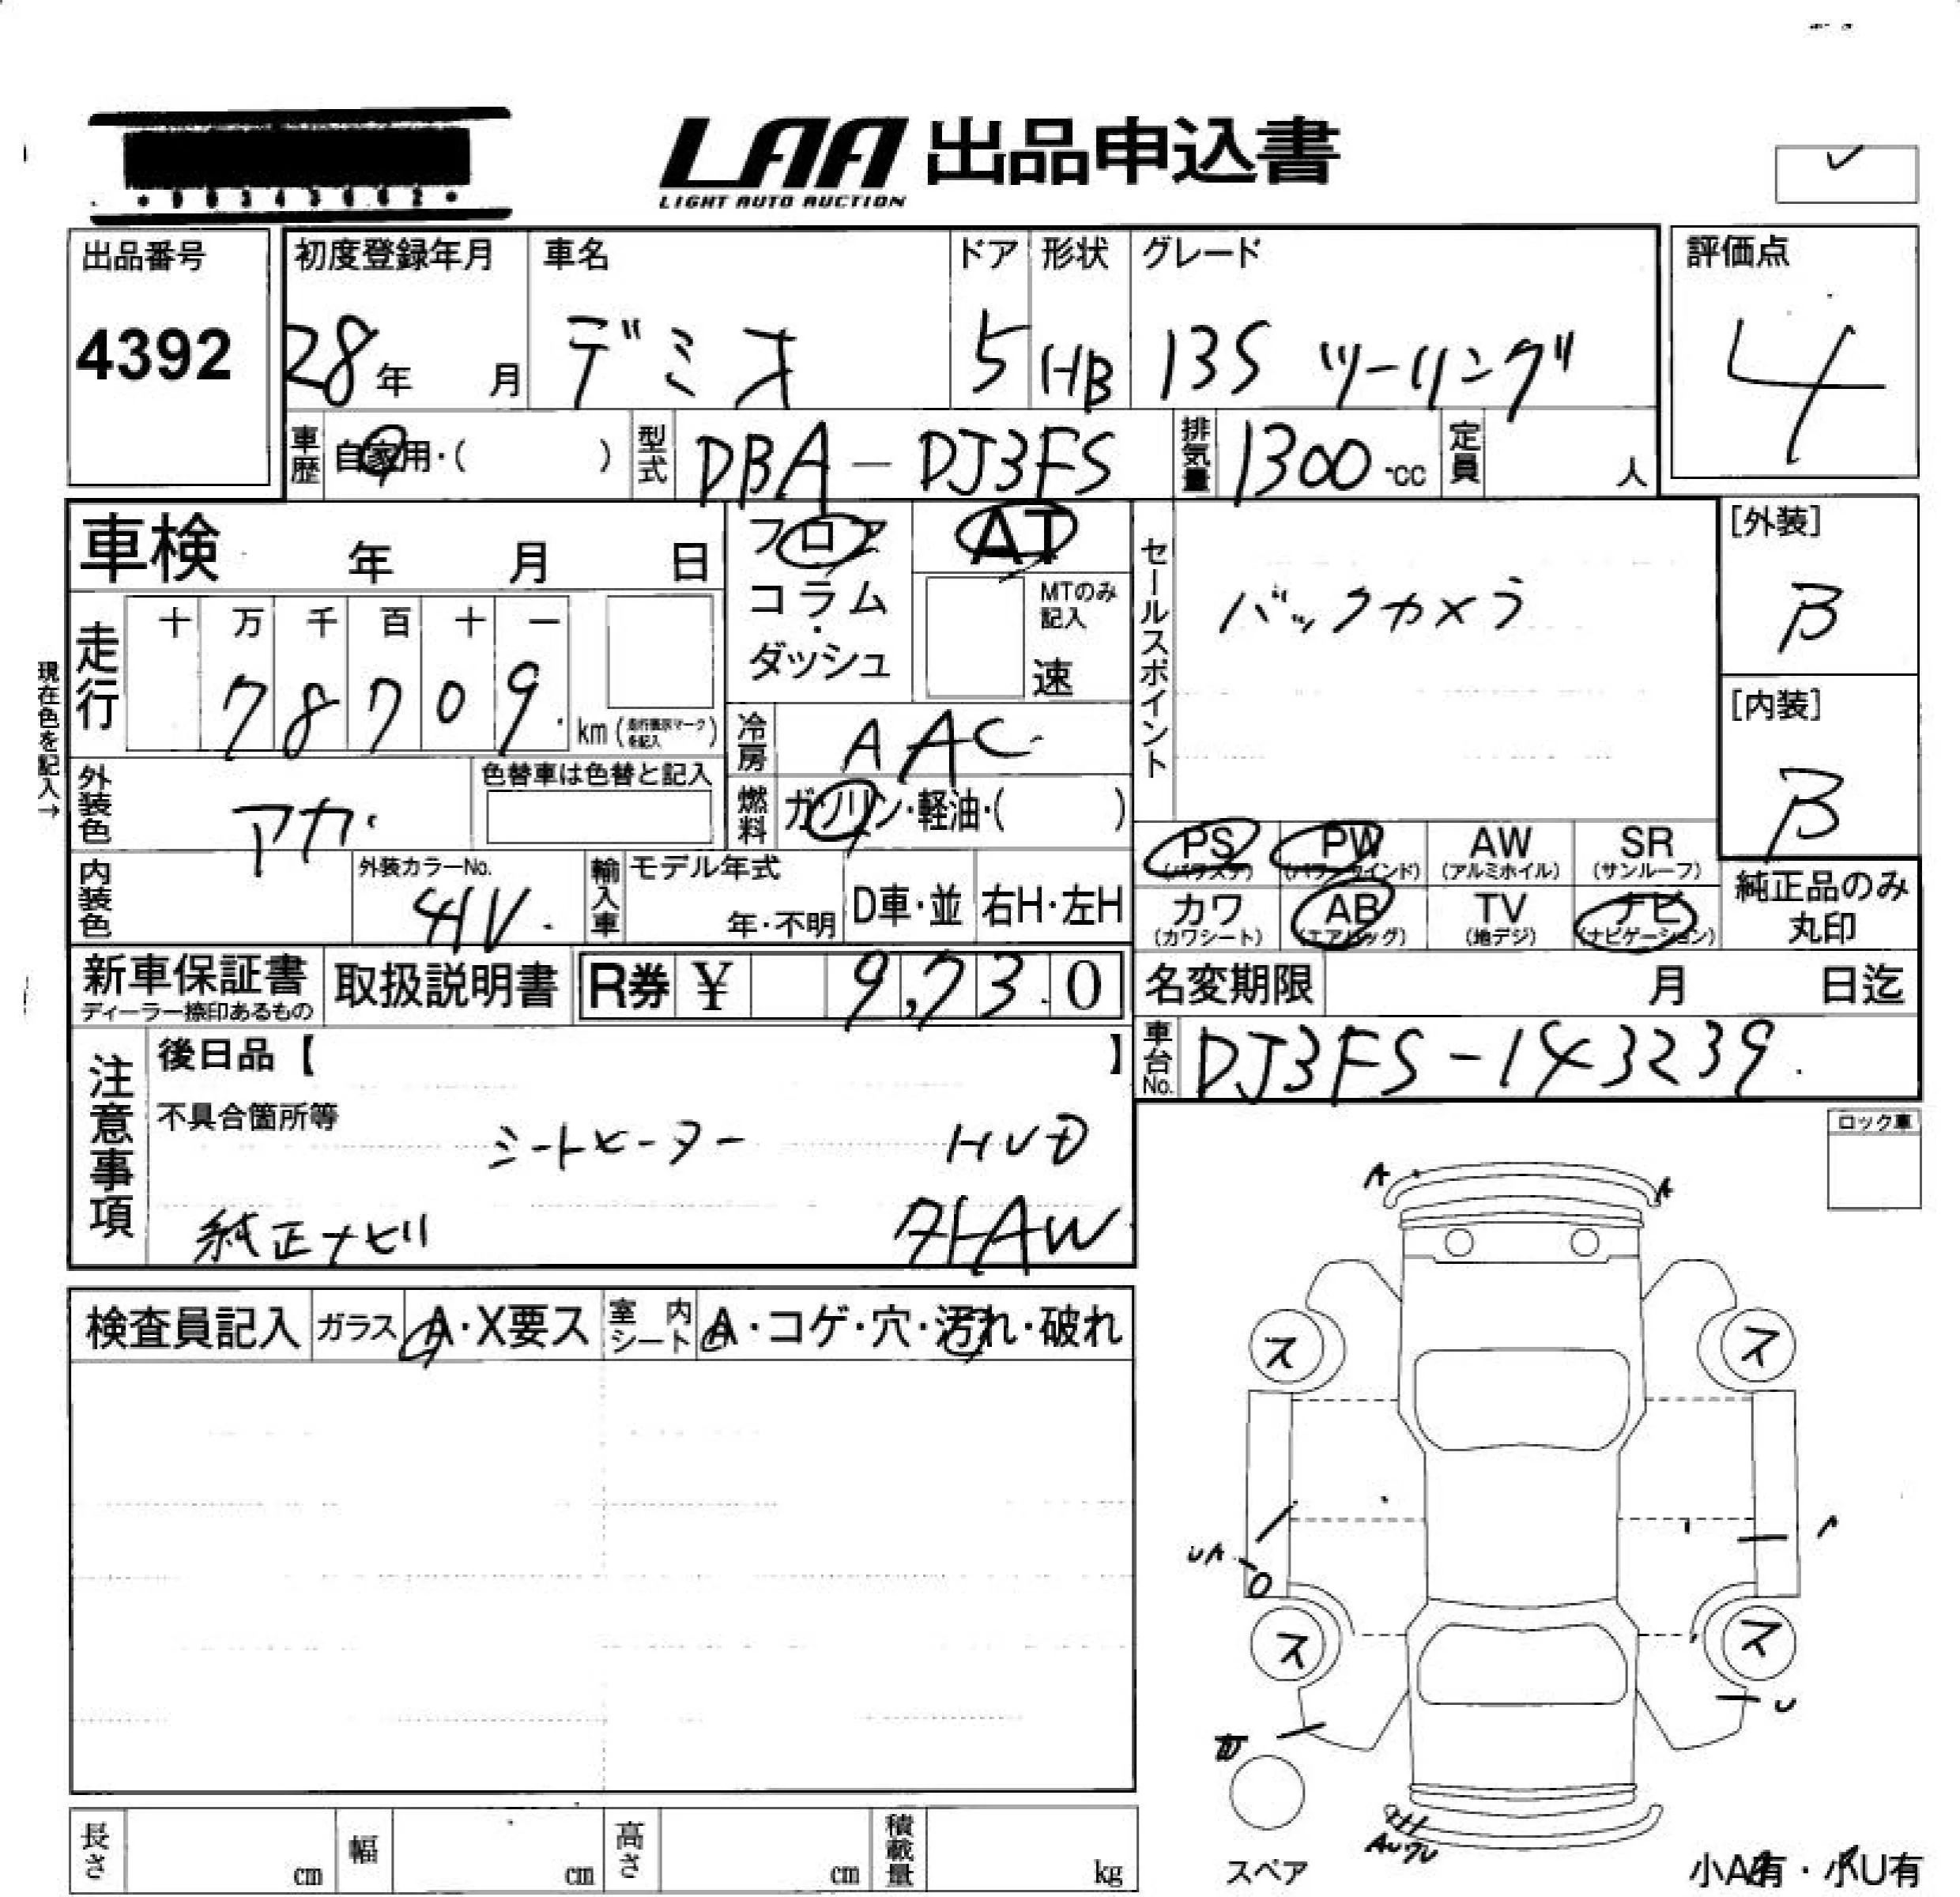 LAA 出品申込書
LIGHT AUTO AUCTION
出品番号
4392
初度登録年月
28年 月
車名
デミオ
ドア
5
形状
HB
グレード
13S ツーリング
評価点
4
車歴
自家用・( )
型式
DBA-DJ3FS
排気量
1300 cc
定員
人
車検 年 月 日
フロア
コラム・
ダッシュ
AT
MTのみ記入
速
セールスポイント
バックカメラ
[外装]
B
[内装]
B
現在色を記入→
走行
十 万 千 百 十 一
7 8 7 0 9
km (走行表示マークを記入)
冷房
AAC
外装色
アカ
色替車は色替と記入
燃料
ガソリン・軽油・( )
内装色
外装カラーNo.
41V
輸入車
モデル年式
年・不明
D車・並
右H・左H
PS (パワステ)
PW (パワーウインド)
AW (アルミホイル)
SR (サンルーフ)
カワ (カワシート)
AB (エアバッグ)
TV (地デジ)
ナビ (ナビゲーション)
純正品のみ
丸印
新車保証書
ディーラー捺印あるもの
取扱説明書
R券 ¥ 9,730
名変期限 月 日迄
車台No.
DJ3FS-143239
注意事項
後日品【 】
不具合箇所等
シートヒーター HUD
純正ナビ 外AW
ロック車
検査員記入
ガラス
A・X要ス
室内シート
A・コゲ・穴・汚れ・破れ
A
A
ス
ス
UA
A
ス
ス
U
スペア
小A有・小U有
長さ cm
幅 cm
高さ cm
積載量 kg